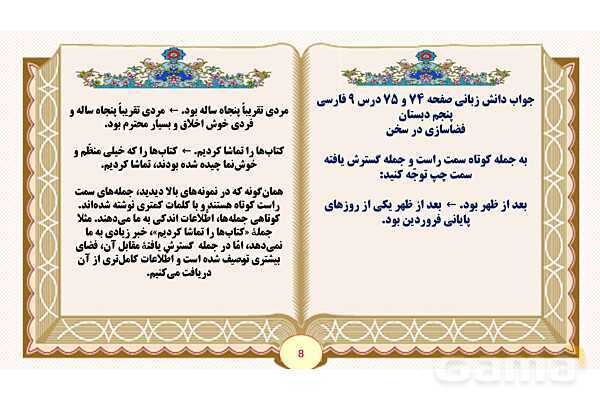 جواب دانش زبانی صفحه ۷۴ و ۷۵ درس ۹ فارسی
پنجم دبستان
فضاسازی در سخن
به جمله کوتاه سمت راست و جمله گسترش یافته
سمت چپ توجّه کنید:
بعد از ظهر بود. ← بعد از ظهر یکی از روزهای
پایانی فروردین بود.
مردی تقریباً پنجاه ساله بود. ← مردی تقریباً پنجاه ساله و
فردی خوش اخلاق و بسیار محترم بود.
کتاب‌ها را تماشا کردیم. ← کتاب‌ها را که خیلی منظّم و
خوش‌نما چیده شده بودند، تماشا کردیم.
همان‌گونه که در نمونه‌های بالا دیدید، جمله‌های سمت
راست کوتاه هستند و با کلمات کمتری نوشته شده‌اند.
کوتاهی جمله‌ها، اطّلاعات اندکی به ما می‌دهند. مثلا
جملهٔ «کتاب‌ها را تماشا کردیم»، خبر زیادی به ما
نمی‌دهد، امّا در جمله گسترش یافتهٔ مقابل آن، فضای
بیشتری توصیف شده است و اطّلاعات کامل‌تری از آن
دریافت می‌کنیم.
8
Gama